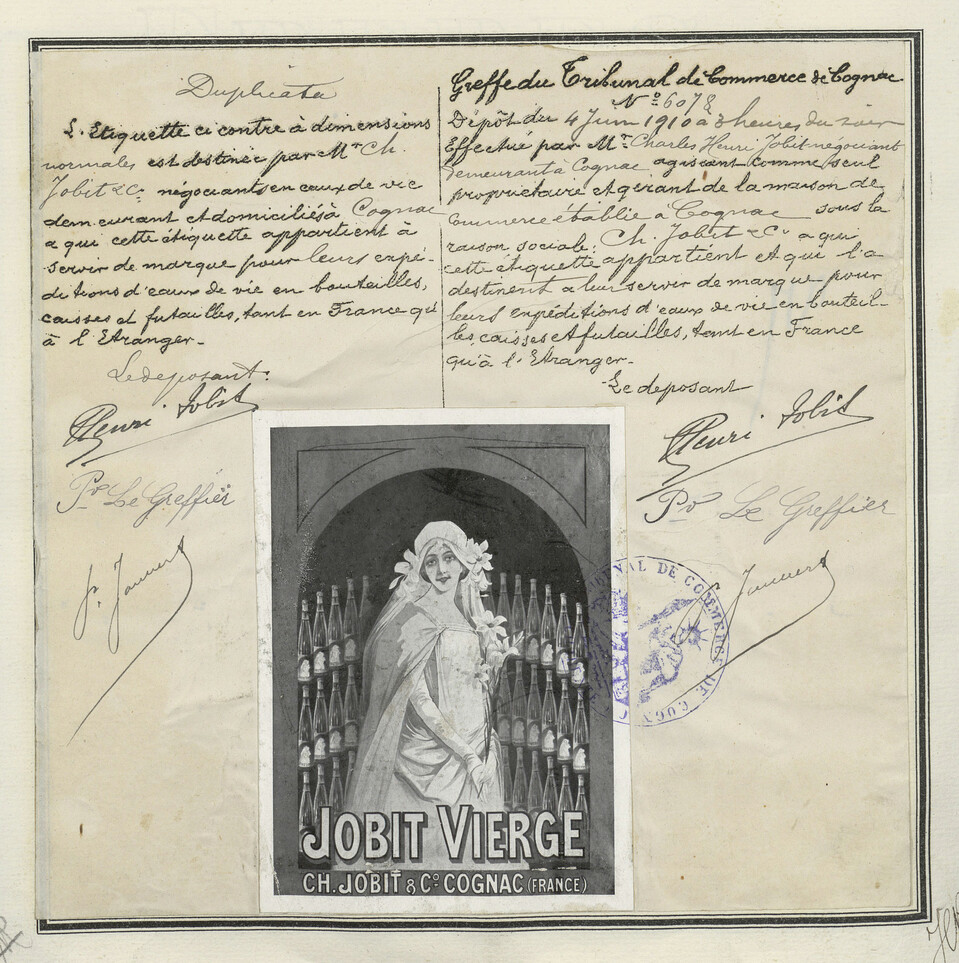 Duplicata
L'Etiquette ci contre à dimensions
normales est destinée par Mr Ch.
Jobit & Cie négociants en eaux de vie
demeurant et domiciliés à Cognac
a qui cette étiquette appartient à
servir de marque pour leurs expé-
ditions d'eaux de vie en bouteilles,
caisses et futailles, tant en France qu'
à l'Etranger.-
Le deposant:
Henri Jobit
Pr Le Greffier
Greffe du Tribunal de Commerce de Cognac
No 6078
Dépôt du 4 Juin 1910 à 3 heures du soir
Effectué par Mr Charles Henri Jobit négociant
demeurant à Cognac agissant comme seul
propriétaire et gérant de la maison de
Commerce établie à Cognac sous la
raison sociale: Ch. Jobit & Cie a qui
cette étiquette appartient et qui l'a
destinent a leur servir de marque pour
leurs expéditions d'eaux de vie en bouteil-
les, caisses et futailles, tant en France
qu'à l'Etranger.-
Le deposant
Henri Jobit
Pr Le Greffier
TRIBUNAL DE COMMERCE DE COGNAC
JOBIT VIERGE
CH. JOBIT & Co COGNAC (FRANCE)